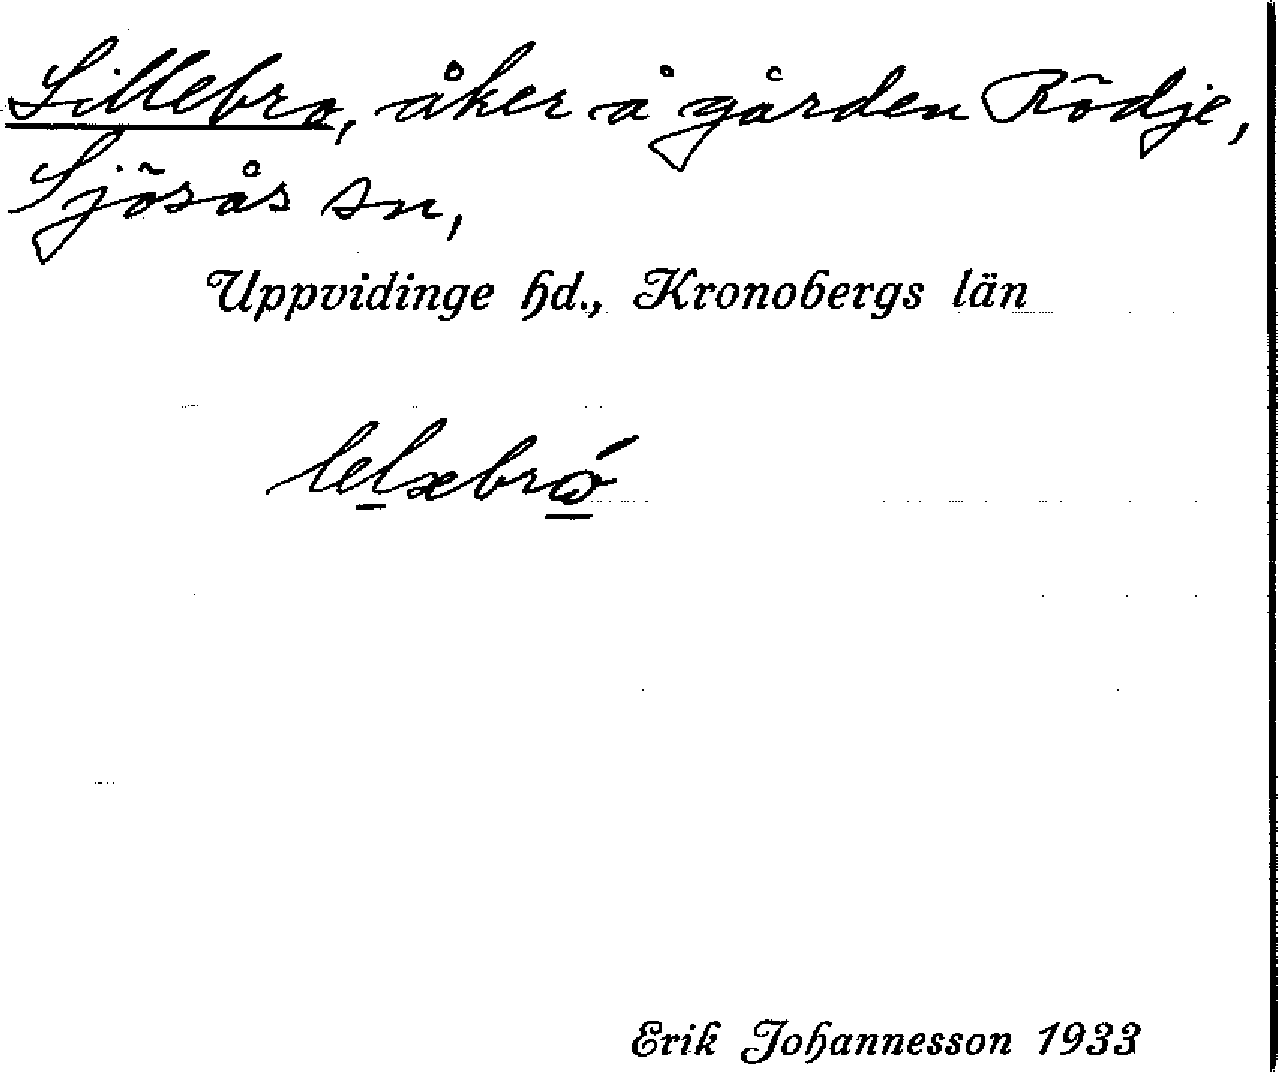 Lillebro, åker å gården Rödje,
Sjösås sn,
Uppvidinge hd., Kronobergs län
lelæbró
Erik Johannesson 1933